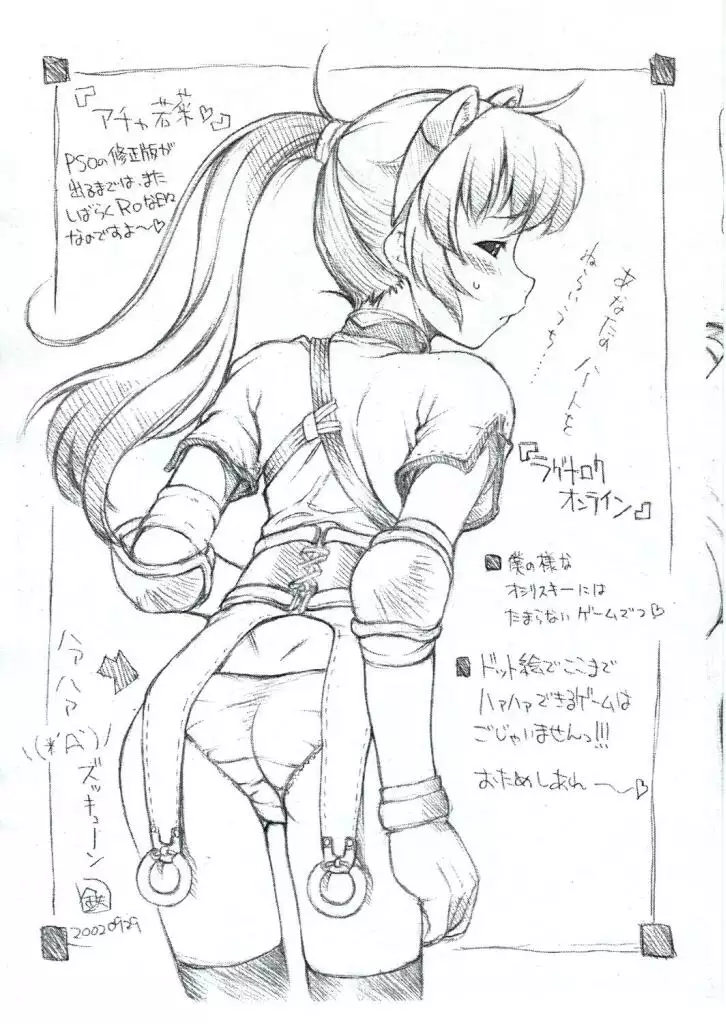 『アチャ若菜♡』
PSOの修正版が
出るまでは、また
しばらくROな日々
なのですよ〜♡
あなたの
ハートを
ねらいうち……
『ラグナロク
オンライン』
■僕の様な
オシリスキーには
たまらないゲームでつ♡
■ドット絵でここまで
ハァハァできるゲームは
ごじゃいませんっ!!!
おためしあれ〜♡
ハァハァ
\(*´Д`)/
ズッキューン
20020929